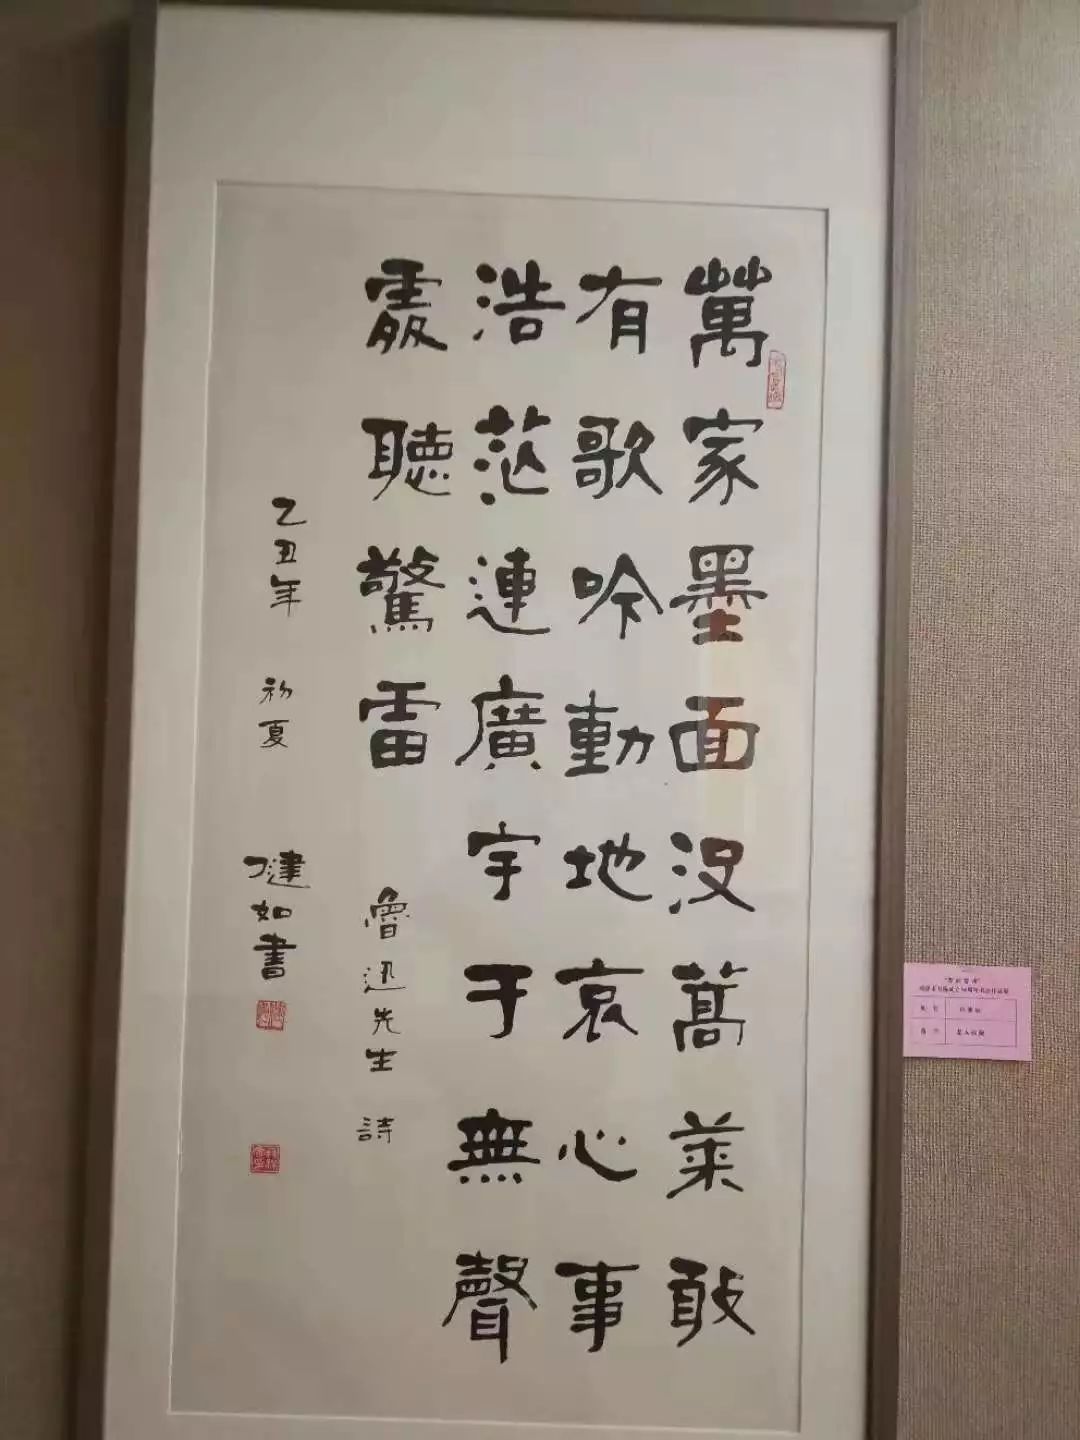 萬家墨面没蒿萊敢
有歌吟動地哀心事
浩茫連廣宇于無聲
處聽驚雷
魯迅先生 詩
乙丑年 初夏
健如書